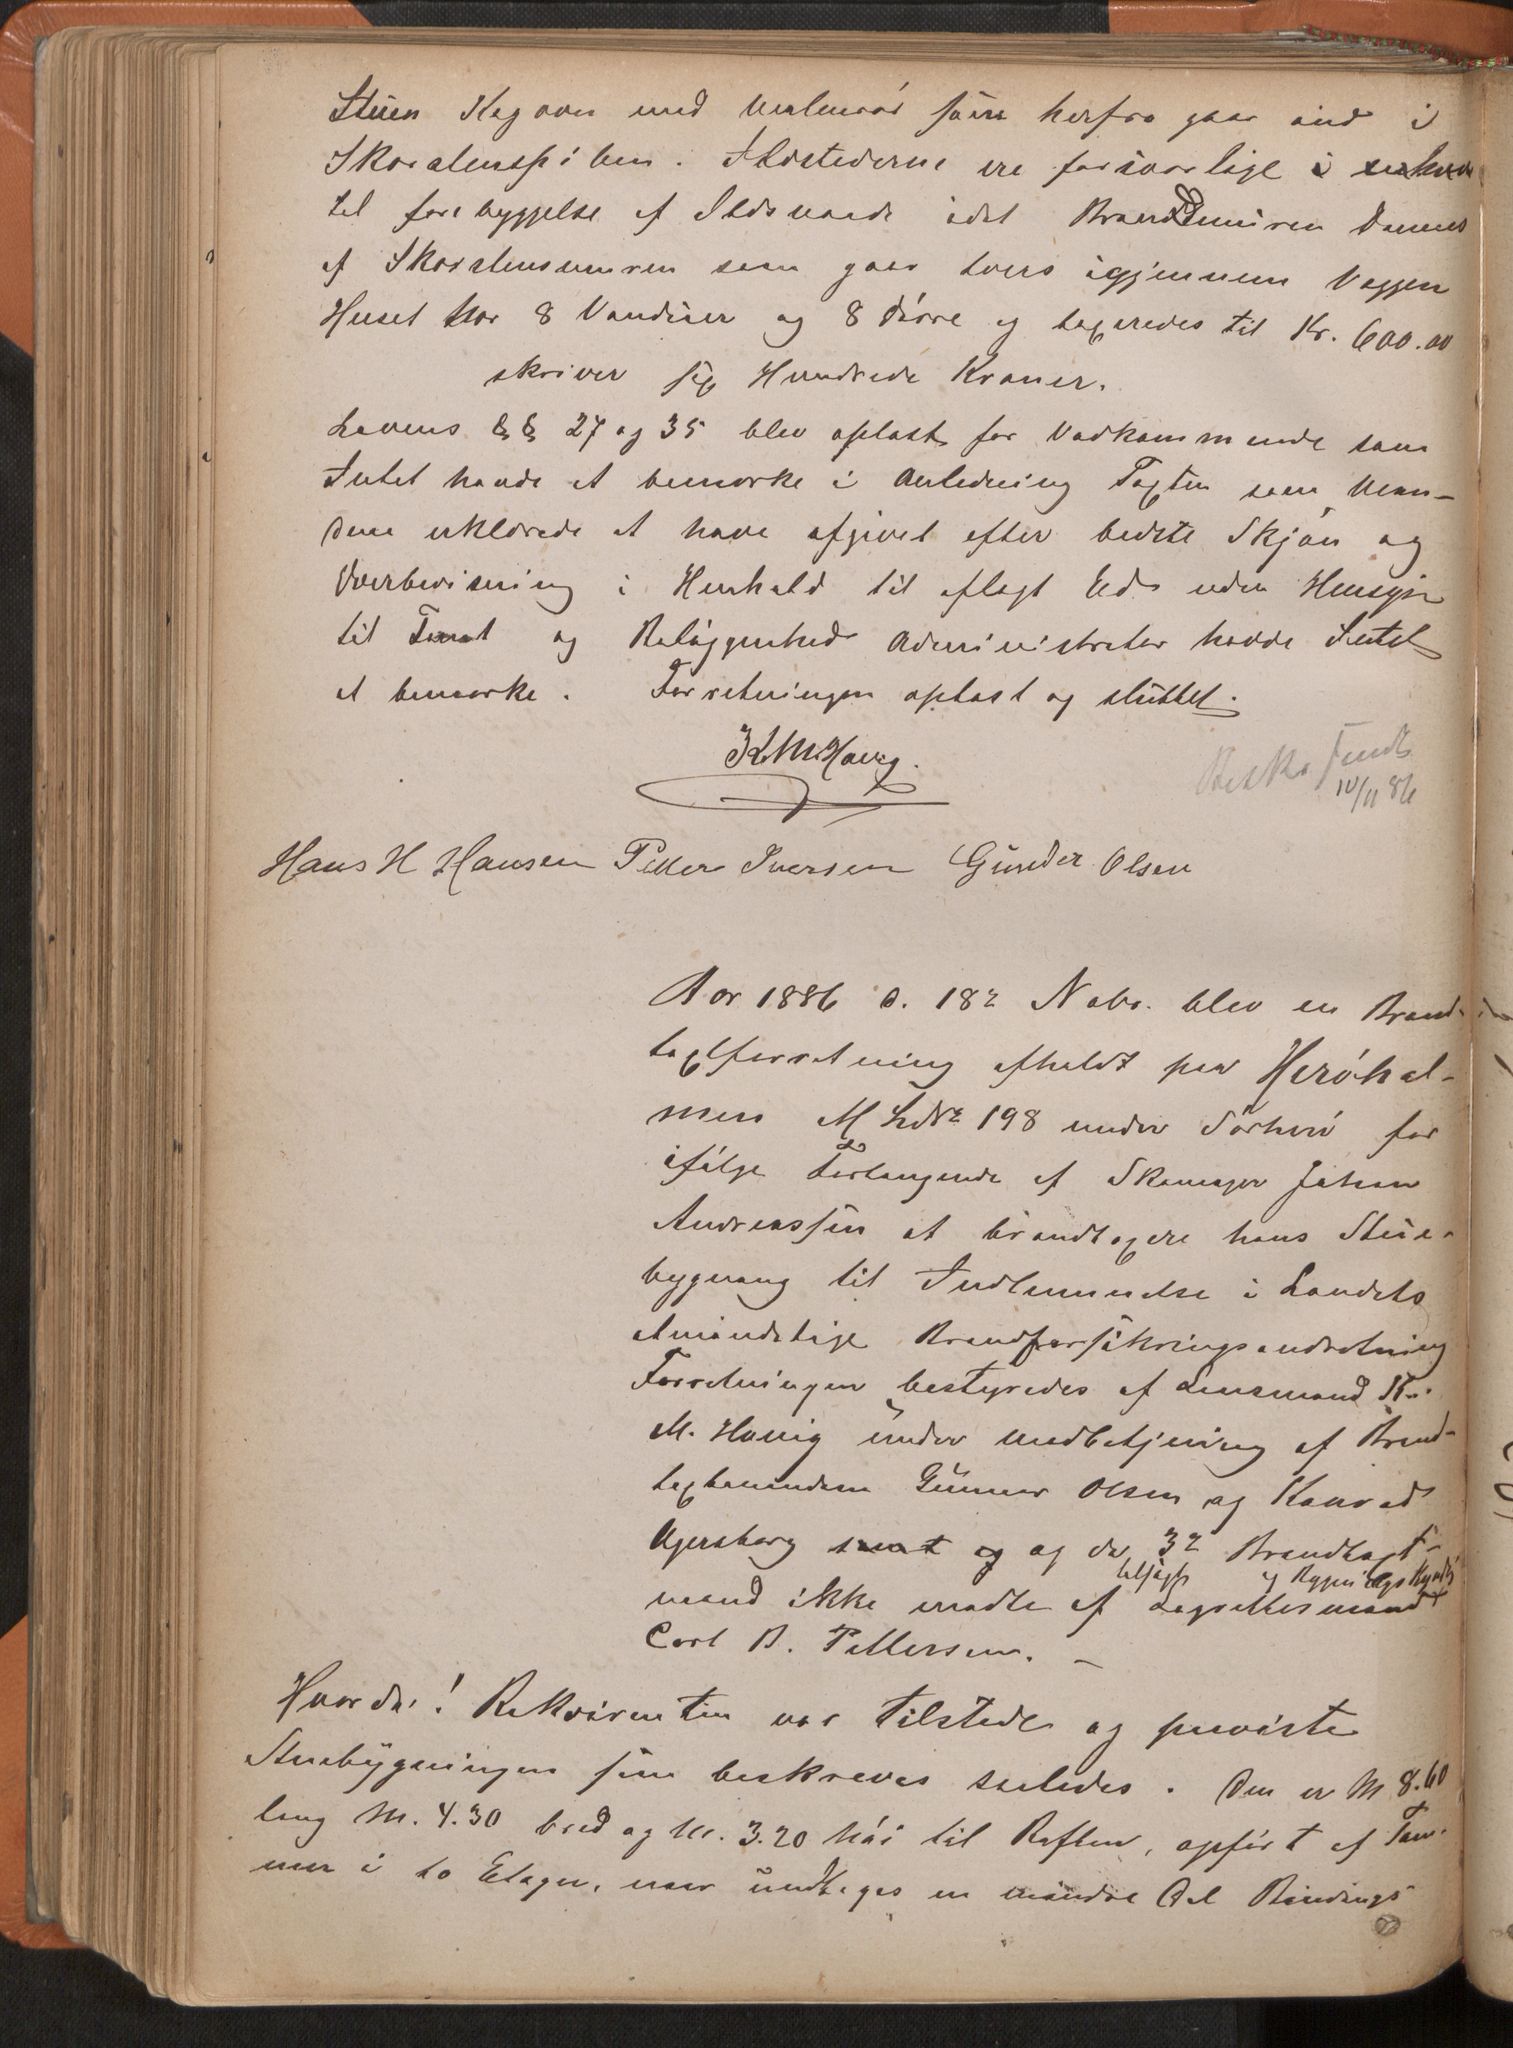 Stuen Kogovn med Mellemrör som herfra gaar ind i
Skorstenspiben. Ildstederne ere forsvarlige i
til forebyggelse af Ildsvaade idet Brandmuren dannes
af Skorstensmuren som gaar tvers igjennem Væggen
Huset har 8 Vinduer og 8 Dörre og taxeredes til Kr. 600.00
skriver sex Hundrede Kroner.
Lovens §§ 27 og 35 blev oplæst for Vedkommende som
Intet havde at bemærke i Anledning Taxten som Mæn-
dene erklærede at have afgivet efter bedste Skjön og
Overbevisning i Henhold til aflagt Ed uden Hensyn
til Tomt og Beliggenhed Administrator havde Intet
at bemærke. Forretningen oplæst og sluttet.
K. M. Havig.
Besk. sendt
10/11 86
Hans H Hansen Petter Iversen Gunder Olsen
Aar 1886 d. 18de Novbr. blev en Brand-
taxtforretning afholdt paa Heröhol-
men M Lbr 198 under Sörherö for
ifölge Forlangende af Skomager Johan
Andreassen at brandtaxere hans Stue-
bygning til Indlemmelse i Landets
almindelige Brandforsikringsindretning
Forretningen bestyredes af Lensmand K.
M. Havig under Medbetjening af Brand-
taxtmændene Gunnar Olsen og Konrad
Ugersborg samt og og da 3de Brandtaxt-
mand ikke mödte af Lagrettesmand
tilsagt og Bygningskyndig
Carl B. Pettersen. –
Hvorda! Rekvirenten var tilstede og paaviste
Stuebygningen som beskreves saaledes. Den er M 8.60
lang M. 4.30 bred og M. 3.20 höi til Raften, opfört af Töm-
mer i to Etager, naar undtages en mindre Del Bindings